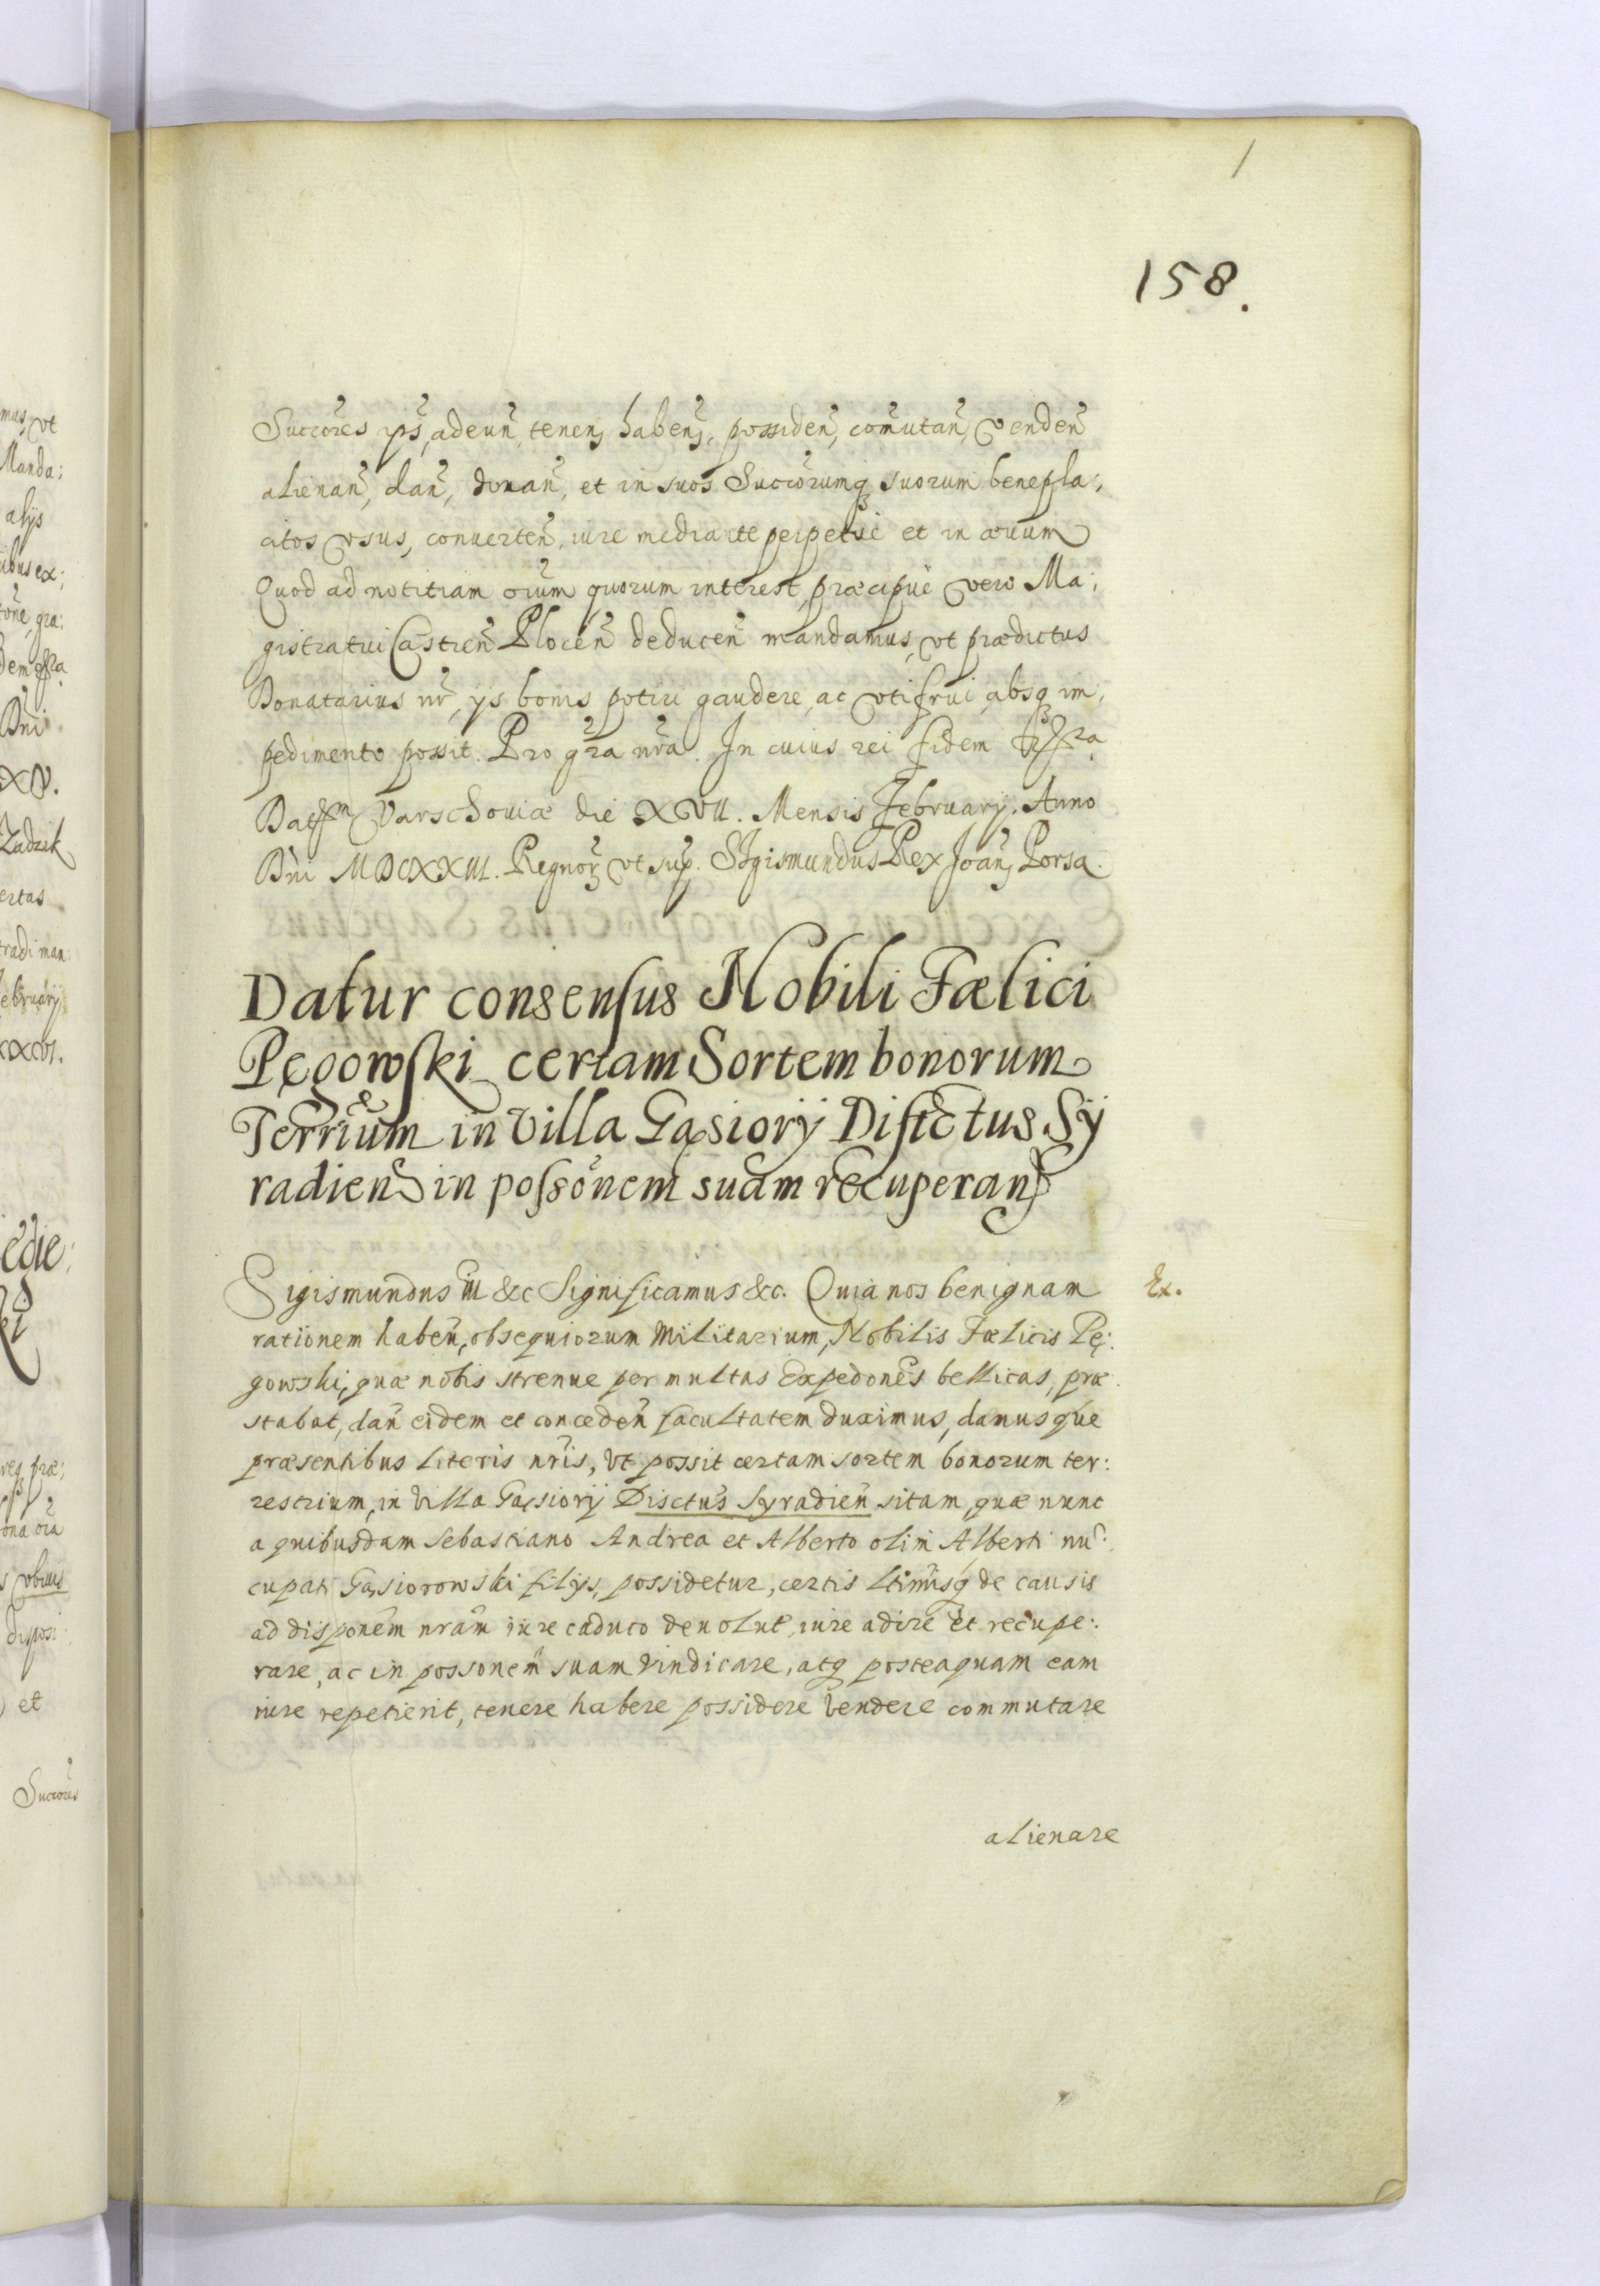 1
158.
Succores ips, adeun, tenen, haben, possiden, comutan, venden
alienan, dan, donan, et in suos Succorumq suorum benepla:
citos vsus, conuerten, iure mediante perpetue et in æuum
Quod ad notitiam oium quorum interest, præcipue vero Ma:
gistratui Castren Plocen deducen mandamus, vt prædictus
Donatarius nr, ys bonis potiri gaudere, ac vti frui, absq im:
pedimento possit. Pro gra nra. In cuius rei fidem
Varschouiæ die XVII. Mensis February. Anno
Dni MDCXXVI. Regnor vt sup. Sigismundus Rex Joan Porsa.
Datur consensus Nobili Fælici
Pęgowski certam Sortem bonorum
Terrium in Villa Gąsiorÿ Distctus Sÿ
radien in possonem suam recuperan
Sigismundus III &c Significamus &c. Quia nos benignam
Ex.
rationem haben, obsequiorum militarium, Nobilis Fælicis Pę:
gowski, quæ nobis strenue per multas Expedones bellicas, præ
stabat, dan eidem et conceden facultatem duximus, damusque
præsentibus literis nris, vt possit certam sortem bonorum ter:
restrium, in Villa Gąsiorÿ Disctus Syradien sitam, quæ nunc
a quibusdam Sebastiano Andrea et Alberto olim Alberti nu:
cupati Gąsiorowski filys, possidetur, certis ltimisq de causis
ad disponem nram iure caduco deuolut, iure adire et recupe:
rare, ac in possonem suam vindicare, atq posteaquam eam
iure repetierit, tenere habere possidere vendere commutare
alienare